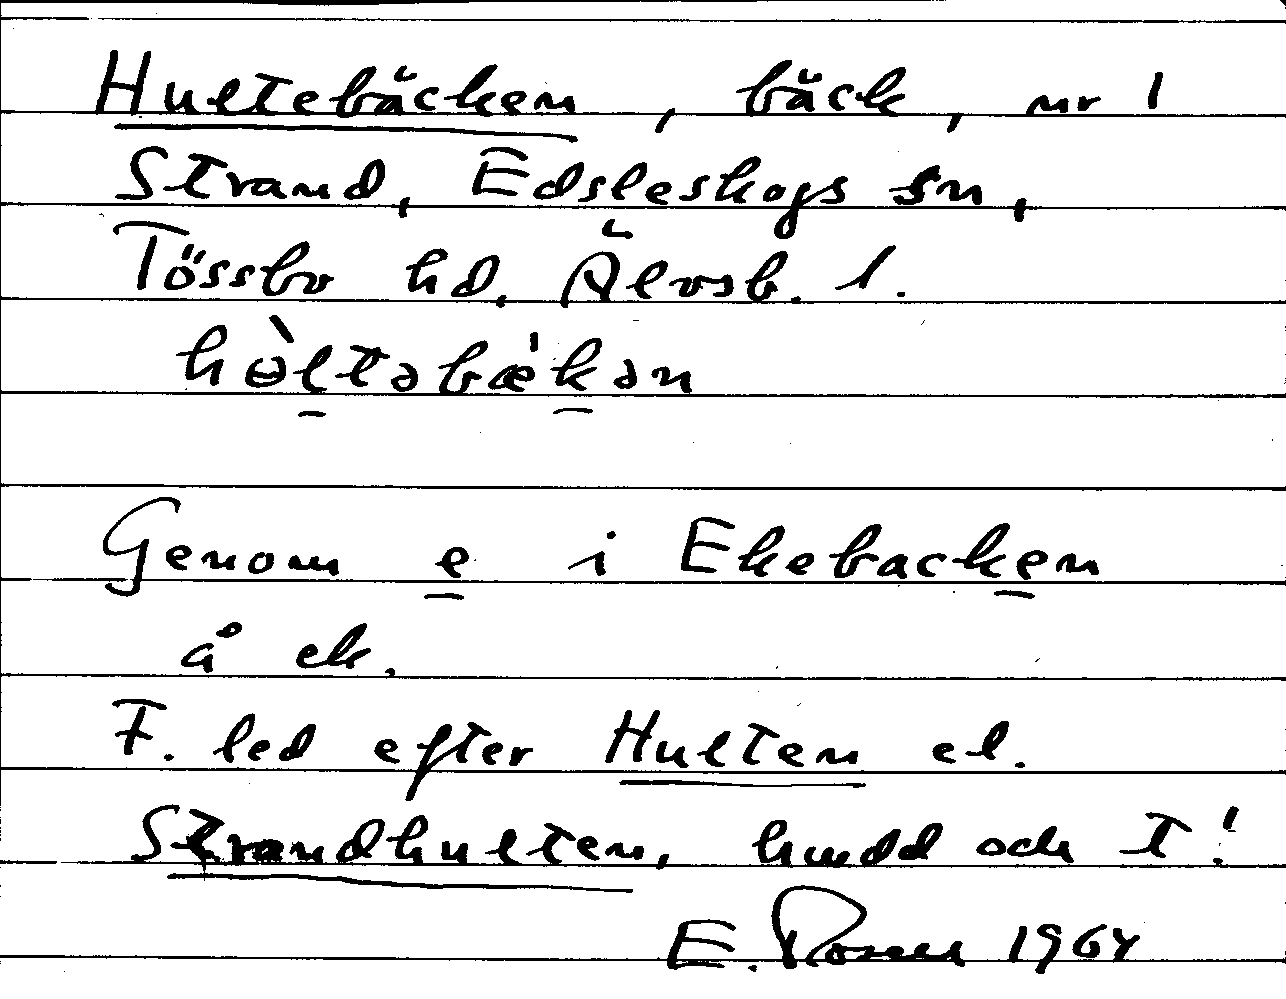 Hultebäcken, bäck, nr 1
Strand, Edsleskogs sn,
Tössbo hd, Älvsb. l.
hɵ̀l̠təbæ'k̠ən
Genom e i Ekebacken
å ek.
F. led efter Hulten el.
Strandhulten, hudd och T!
E. Rosell 1964